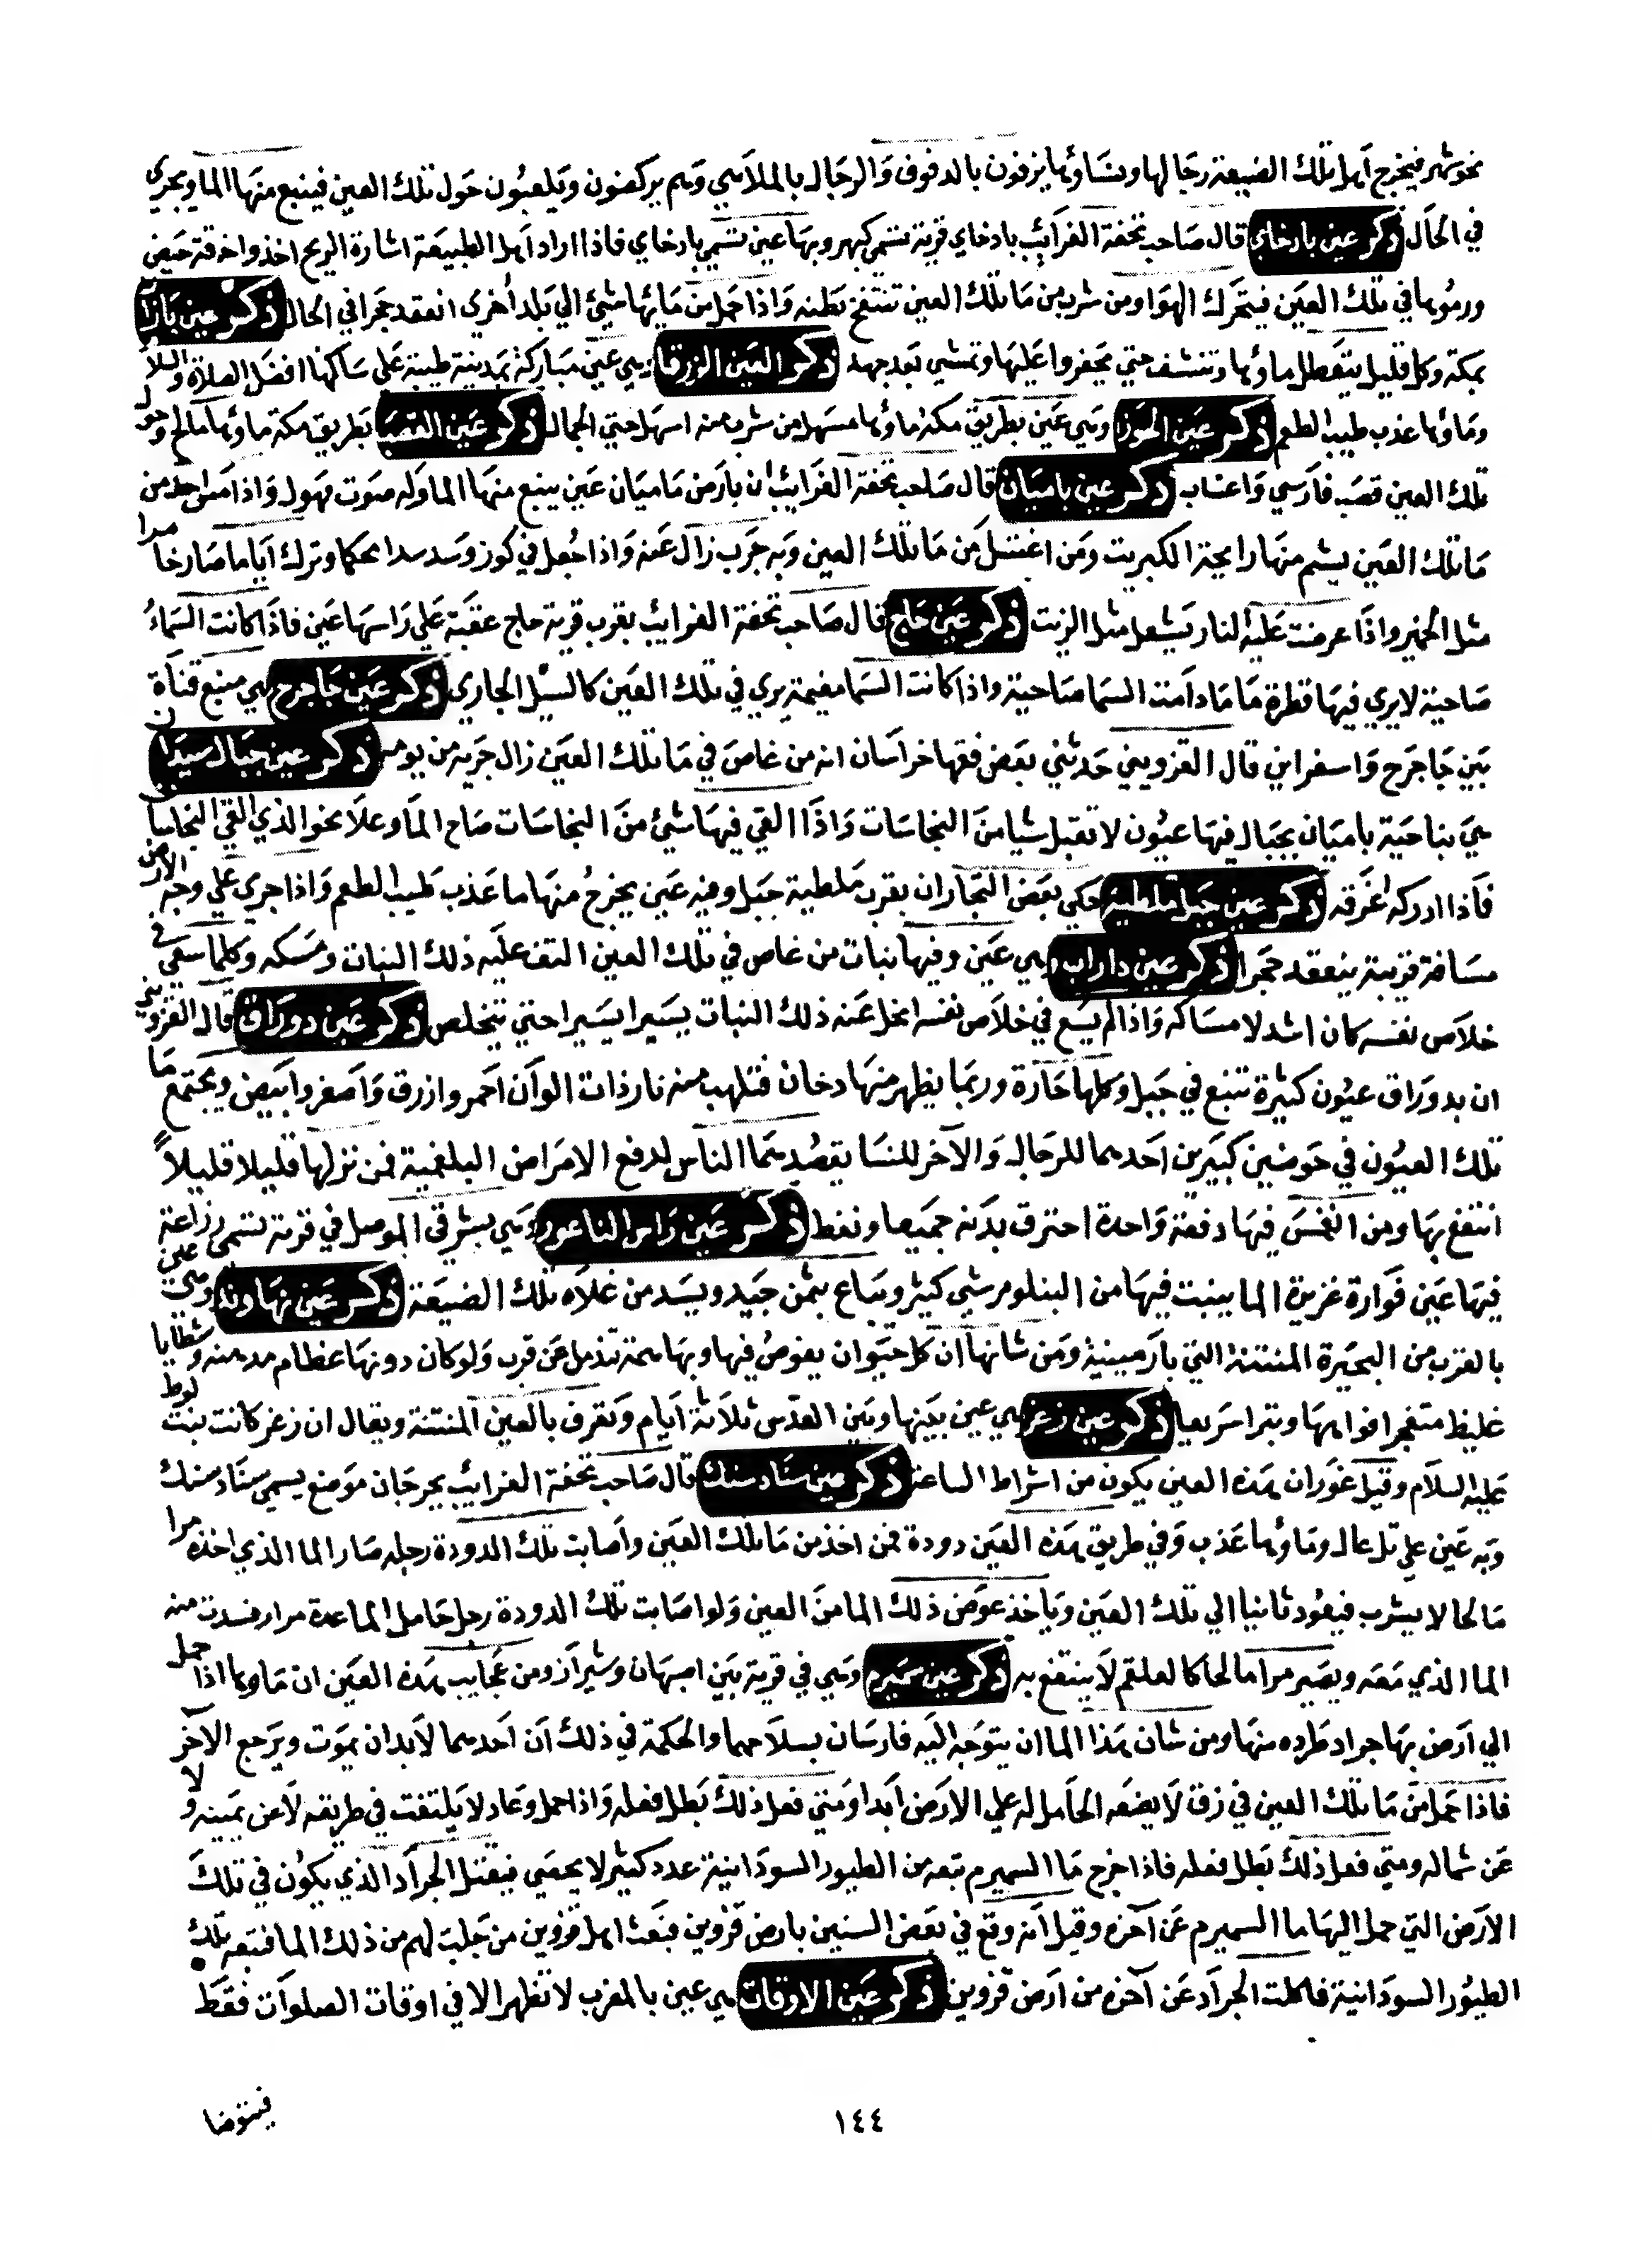 نحو شهر فيخرج اهل تلك الضيعة رجالها ونساؤها يزفون بالدفوف والرجال بالملاهي وهم يركضون ويلعبون حول تلك العين فينبع منها الما ويجري
في الحال ذكر عين بادخاي قال صاحب تحفة الغرايب بادخاي قرية تسمي كهر وبها عين تسمي بادخاي فاذا اراد اهل الطبيعة اشارة الريح اخذوا خرقة حيض
ورموها في تلك العين فيتحرك الهوا ومن شرب من ما تلك العين تنتفخ بطنه واذا حمل من مايها شيئ الي بلد أخري انعقد حجرا في الحال ذكر عين بازان
بمكة وكل قليل يتعطل ماؤها وتنشف حتي يحفروا عليها وتمشي بعد جهد ذكر العين الزرقا هي عين مباركة بمدينة طيبة علي ساكنها افضل الصلاة والسلام
وماؤها عذب طيب الطعم ذكر عين وهي عين بطريق مكة ماؤها مسهل من شرب منه اسهل حتي الجمال ذكر عين القصب بطريق مكة ماؤها مالح وحول
تلك العين قصب فارسي واعشاب ذكر عين باميان قال صاحب تحفة الغرايب ان بارض ماميان عين ينبع منها الما وله صوت مهول واذا احد من
ما تلك العين يشم منها رايحة الكبريت ومن اغتسل من ما تلك العين وبه جرب زال عنه واذا جعل في كوز وسد سدا محكما وترك اياما صار خا
مثل الخمير واذا عرضت عليه النار يشعل مثل الزيت ذكر عين حاج قال صاحب تحفة الغرايب بقرب قرية حاج عقبة علي راسها عين فاذا كانت السماء
صاحية لا يري فيها قطرة ما ما دامت السما صاحية واذا كانت السما مغيمة يري في تلك العين كالسيل الجاري ذكر عين جاجرح هي منبع قناة
بين جاجرح واسفراين قال القزويني حدثني بعض فقها خراسان انه من غاص في ما تلك العين زال جربه من يومه ذكر عين جبال سيدان
هي بناحية باميان بجبال فيها عيون لا تقبل شيا من النجاسات واذا القي فيها شيئ من النجاسات صاح الما وعلا نحو الذي القي النجاسات
فاذا ادركه غرقه ذكر عين جبل ملطية حكي بعض التجار ان بقرب ملطية جبل وفيه عين يخرج منها ما عذب طيب الطعم واذا جري علي وجه الارض
مسافة قريبة ينعقد حجرا ذكر عين داراب هي عين وفيها نبات من غاص في تلك العين التف عليه ذلك النبات ومسكه وكلما سعي في
خلاص نفسه كان اشد لامساكه واذا لم يسع في خلاص نفسه انحل عنه ذلك النبات يسيرا يسيرا حتي يتخلص ذكر عين دوراق قال القزويني
ان بدوراق عيون كثيرة تنبع في جبل وكلها حارة وربما يظهر منها دخان فتلهب منه نار ذات الوان احمر وازرق واصفر وابيض ويجتمع ما
تلك العيون في حوضين كبيرين احدهما للرجال والآخر للنسا يقصدهما الناس لدفع الامراض البلغمية فمن نزلها قليلا قليلاً
انتفع بها ومن انغمس فيها دفعة واحدة احترق بدنه جميعا ونفط ذكر عين راس الناعور وهي بشرقي الموصل في قرية تسمي زراعة
فيها عين فوارة غزيرة الما ينبت فيها من النيلوفر شي كثير ويباع بثمن جيد ويسد من غلاه تلك الضيعة ذكر عين نهاوند وهي عين
بالقرب من البحيرة المنتنة التي بارمينية ومن شانها ان كل حيوان يغوص فيها وبها سمة تندمل عن قرب ولو كان دونها عظام مدمنه وشظايا
غليظ متفجرا فواهها وتبرا سريعا ذكر عين زعر هي عين بينها وبين القدس ثلاثة ايام وتعرف بالعين المنتنة ويقال ان زغر كانت بنت لوط
عليه السلام وقيل غوران هذه العين يكون من اشراط الساعة ذكر عين سناد سنك قال صاحب تحفة الغرايب بجرجان موضع يسمي سناد سنك
وبه عين علي تل عال وماؤها عذب وفي طريق هذه العين دودة فمن اخذ من ما تلك العين واصابت تلك الدودة رجله صار الما الذي اخذه مرا
مالحا لا يشرب فيعود ثانيا الي تلك العين وياخذ عوض ذلك الما من العين ولو اصابت تلك الدودة رجل حامل الما عدة مرار فسدت منه
الما الذي معه ويصير مرا مالحا كالعلقم لا ينتفع به ذكر عين سميرم وهي في قرية بين اصبهان وشيراز ومن عجايب هذه العين ان ماوها اذا حمل
الي ارض بها جراد طرده منها ومن شان هذا الما ان يتوجه اليه فارسان بسلاحهما والحكمة في ذلك ان احدهما لابد ان يموت ويرجع الآخر
فاذا حمل من ما تلك العين في زق لا يضعه الحامل له علي الارض ابدا ومتي فعل ذلك بطل فعله واذا حمل وعاد لا يلتفت في طريقه لا عن يمينه ولا
عن شماله ومتي فعل ذلك بطل فعله فاذا خرج ما السميرم تبعه من الطيور السودانية عدد كثير لا يحصي فيقتل الجراد الذي يكون في تلك
الارض التي حمل اليها ما السميرم عن آخره وقيل انه وقع في بعض السنين بارض قزوين فبعث اهل قزوين من جلب لهم من ذلك الما فتبعه تلك
الطيور السودانية فاكلت الجراد عن آخره من ارض قزوين ذكر عين الاوقات هي عين بالمغرب لا تظهر الا في اوقات الصلوات فقط
فيتوضا
١٤٤